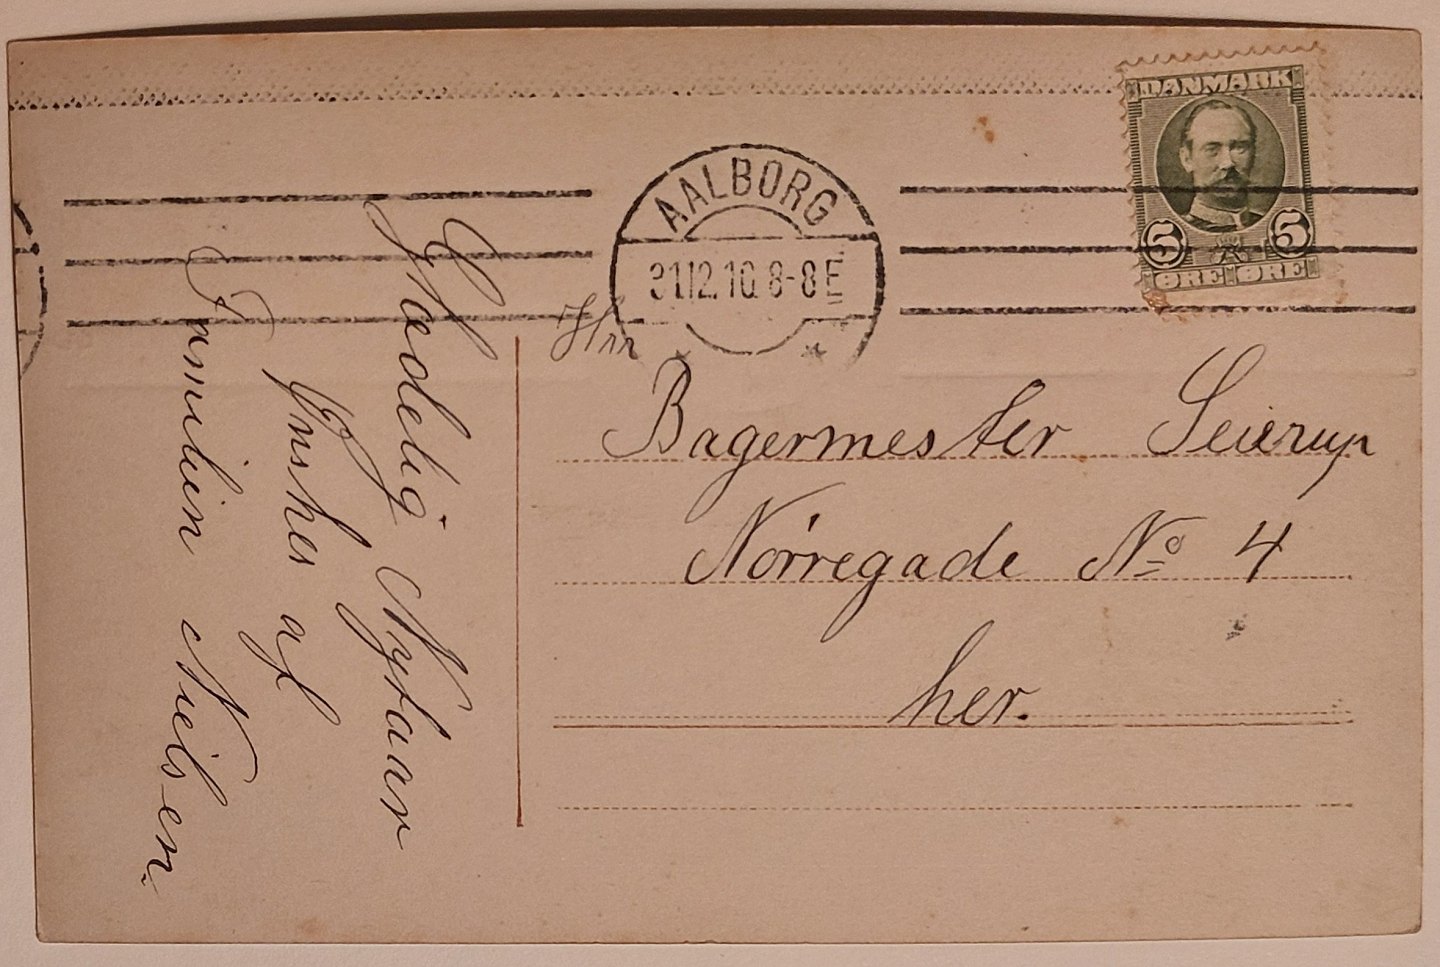 DANMARK
5 5
ØRE ØRE
AALBORG
31.12.10. 8-8 E
Hrr
Bagermester Seierup
Nørregade No 4
her.
Glædelig Nytaar
Ønskes af
Familien Nielsen.